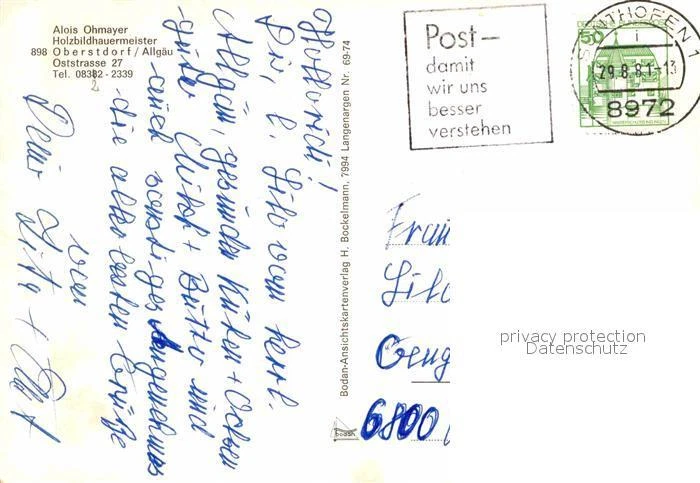 Alois Ohmayer
Holzbildhauermeister
898 Oberstdorf / Allgäu
Oststrasse 27
Tel. 08382 - 2339
2
Post-
damit
wir uns
besser
verstehen
50
SONTHOFEN 1
i
29.8.81-13
8972
Dir, l. Lilo vom herrl.
Allgäu, gesunden Kühen + Ochsen
guter Milch + Butter und
auch sonstiges Angenehmes
die allerbesten Grüße
von
Deiner Rita +
Bodan-Ansichtskartenverlag H. Bockelmann, 7994 Langenargen Nr. 69-74
bodan
Frau
Lilo
Geng
6800
privacy protection
Datenschutz